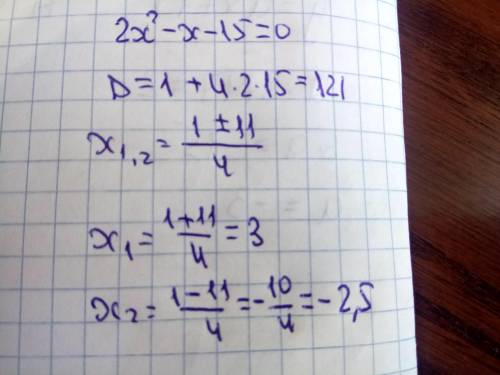 2x² - x - 15 = 0
D = 1 + 4 · 2 · 15 = 121
x₁,₂ = (1 ± 11)/4
x₁ = (1 + 11)/4 = 3
x₂ = (1 - 11)/4 = -10/4 = -2,5